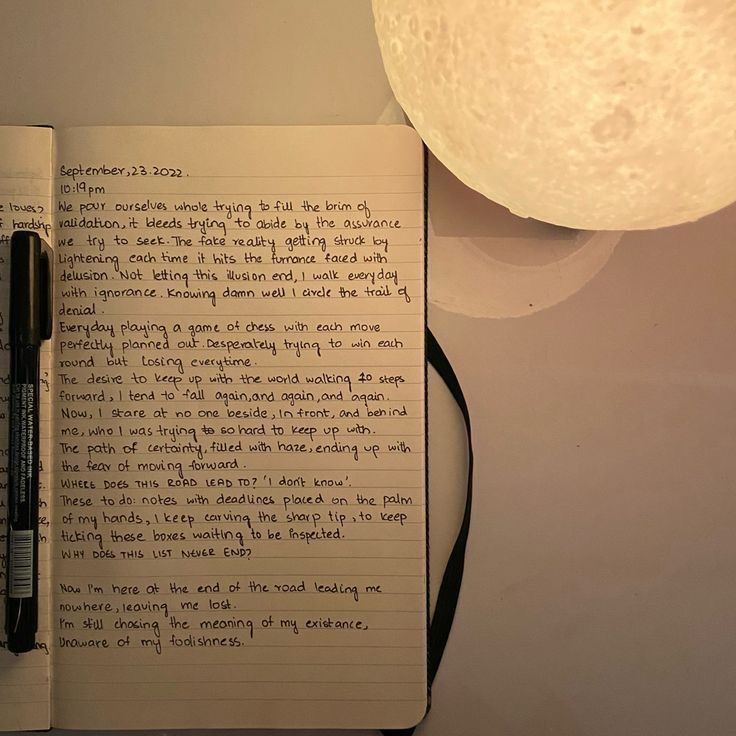 September,23.2022.
10:19pm
We pour ourselves whole trying to fill the brim of
validation, it bleeds trying to abide by the assurance
we try to seek. The fake reality getting struck by
Lightening each time it hits the furnance faced with
delusion. Not letting this illusion end, I walk everyday
with ignorance. Knowing damn well I circle the trail of
denial.
Everyday playing a game of chess with each move
perfectly planned out. Desperately trying to win each
round but losing everytime.
The desire to keep up with the world walking 10 steps
forward, I tend to fall again, and again, and again.
Now, I stare at no one beside, in front, and behind
me, who I was trying to so hard to keep up with.
The path of certainty, filled with haze, ending up with
the fear of moving forward.
WHERE DOES THIS ROAD LEAD TO? 'I don't know'.
These to do: notes with deadlines placed on the palm
of my hands, I keep carving the sharp tip, to keep
ticking these boxes waiting to be inspected.
WHY DOES THIS LIST NEVER END?
Now I'm here at the end of the road leading me
nowhere, leaving me lost.
I'm still chasing the meaning of my existance,
Unaware of my foolishness.
loves?
hardship
SPECIAL WATER-BASED INK
PIGMENT INK, WATERPROOF AND FADELESS